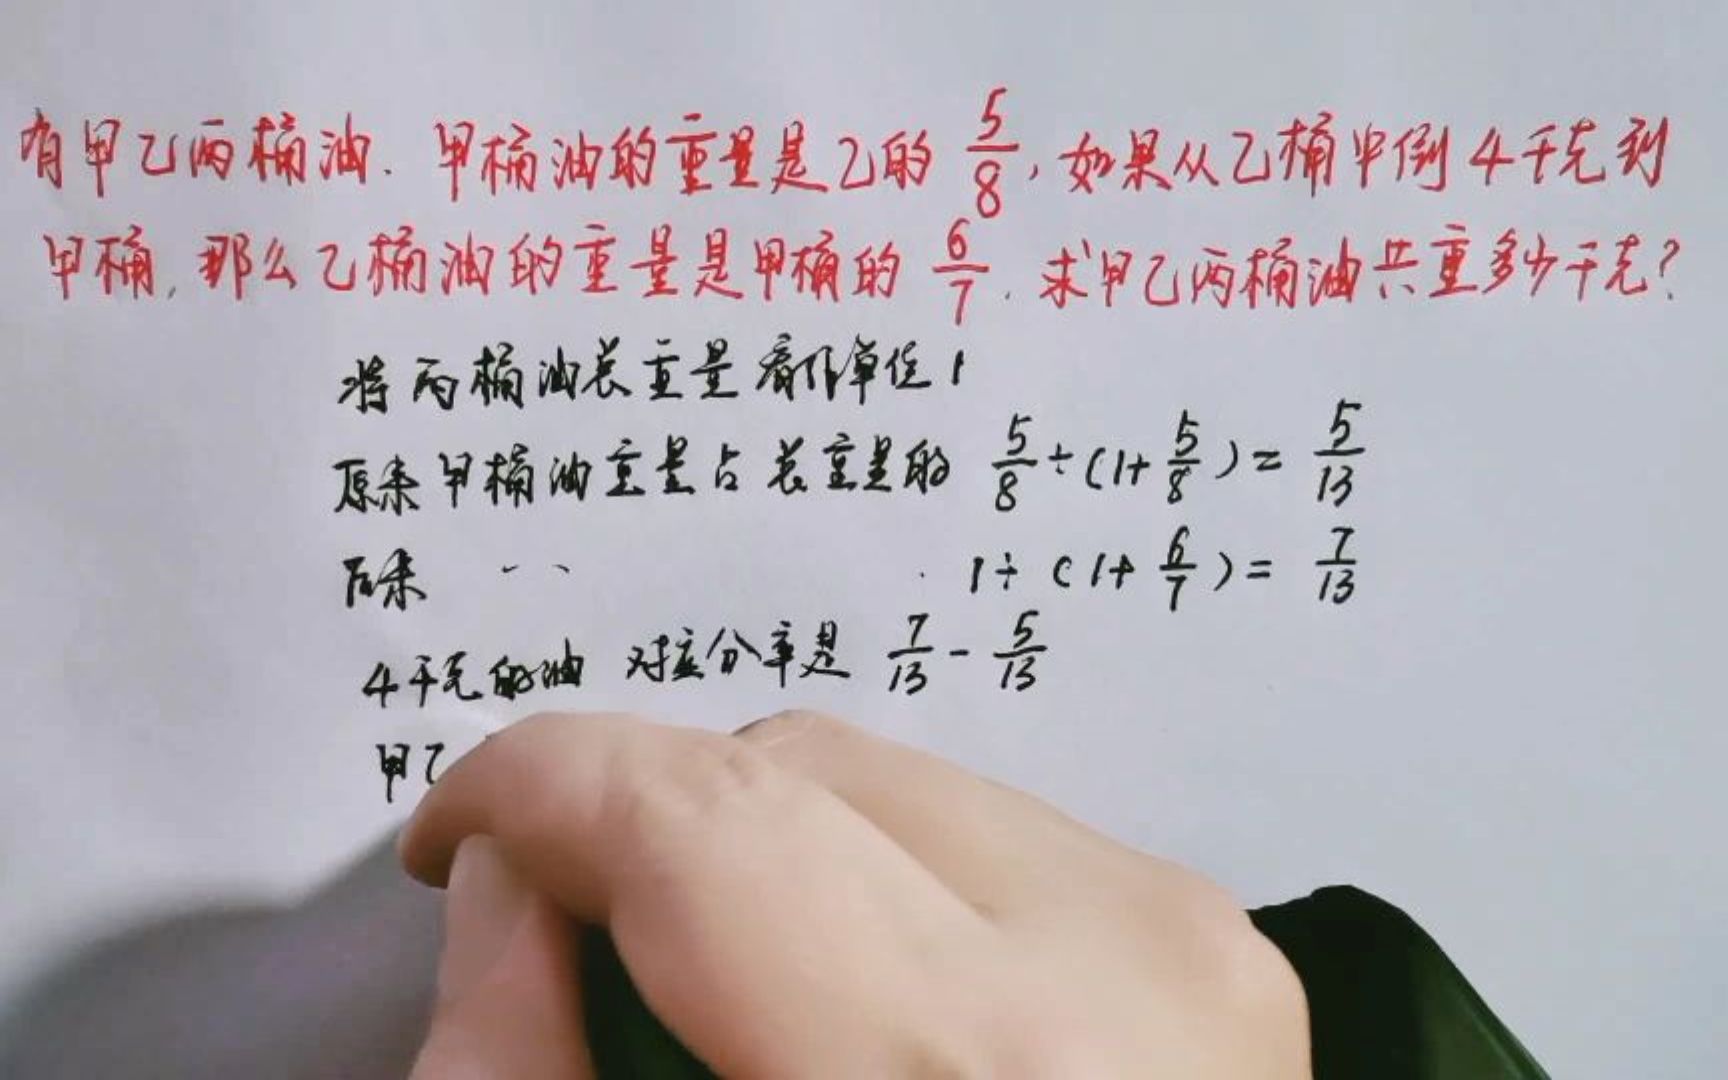 有甲乙两桶油.甲桶油的重量是乙的5/8,如果从乙桶中倒4千克到
甲桶,那么乙桶油的重量是甲桶的6/7.求甲乙两桶油共重多少千克?
将两桶油总重量看作单位1
原来甲桶油重量占总重量的 5/8÷(1+5/8)=5/13
后来 、、 1÷(1+6/7)=7/13
4千克的油 对应分率是 7/13-5/13
甲乙